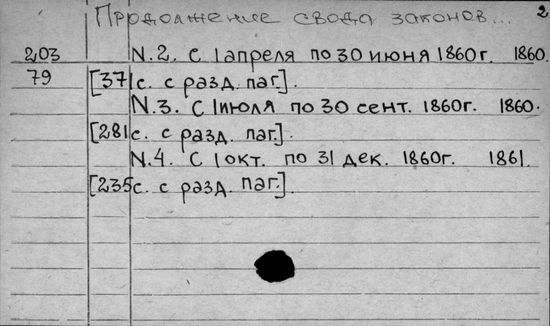 Продолжение свода законов... 2
203 N.2. С 1 апреля по 30 июня 1860г. 1860.
79 [371с. с разд. паг.].
N.3. С 1 июля по 30 сент. 1860г. 1860.
[281с. с разд. паг.].
N.4. С 1 окт. по 31 дек. 1860г. 1861.
[235с. с разд. паг.].